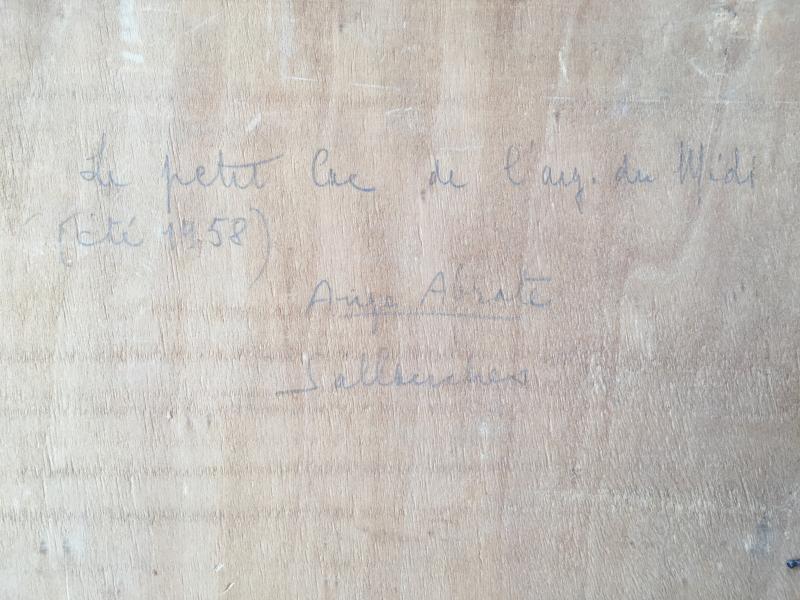 Le petit lac de l'aig. du Midi
(été 1958)
Ange Abrate
Sallanches